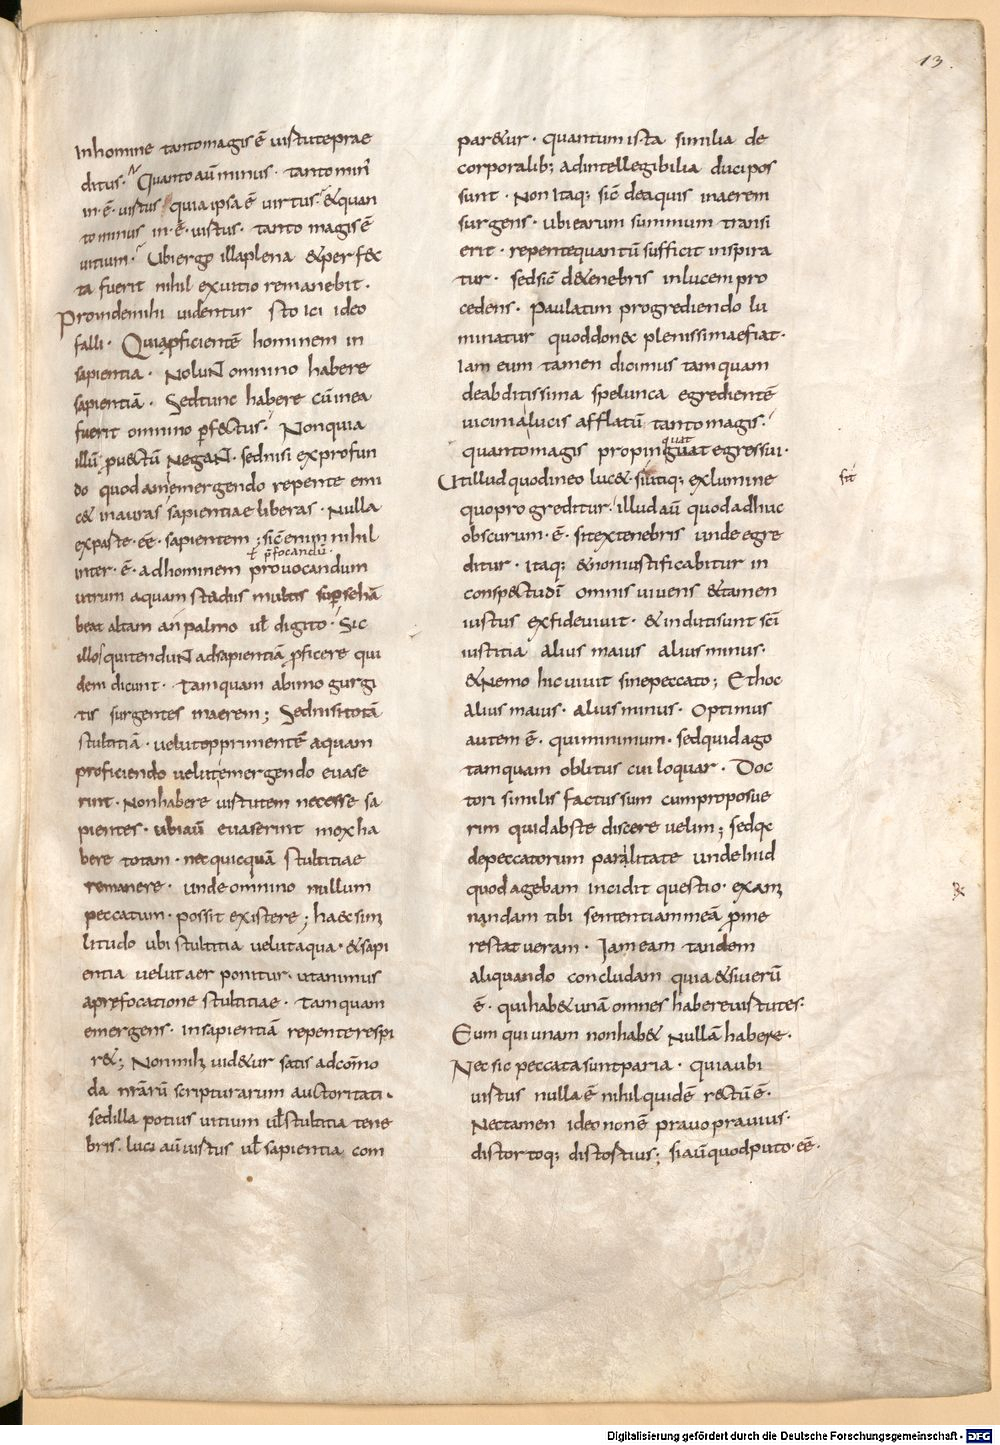 13.
Inhomine tantomagis ē uirtuteprae
ditus. Quanto aū minus. tanto min
in. ē. uirtus quia ipsa ē uirtus. &quan
tominus in. ē. uirtus. tanto magis ē
uitium. Ubiergo illaplena &perfec
ta fuerit nihil exuitio remanebit.
Proindemihi uidentur stoici ideo
falli. Quiaꝓficientē hominem in
sapientia. NoluN omnino habere
sapientiā. Sedtunc habere cū inea
fuerit omnino ꝑfectus. Nonquia
illū puectū NegaN. sednisi exprofun
do quodammergendo repente emi
c& inauras sapientiae liberas. Nulla
exparte. eē. sapientem; sic̄ enim nihil
ł p̄focandū.
inter. ē. adhominem prouocandum
utrum aquam stadiis multis suꝑsehā
beat altam an palmo ul̄ digito. Sic
illos quitenduN adsapientiā ꝓficere qui
dem dicunt. Tamquam abimo gurgi
tis surgentes inaerem; Sednisitotā
stultitiā. uelutopprimentē aquam
proficiendo uelutemergendo euase
rint. Nonhabere uirtutem necesse sa
pientes. ubiaū euaserint moxha
bere totam. nec quicquā stultitiae
remanere. unde omnino nullum
peccatum. possit existere; haec simi
litudo ubi stultitia uelutaqua. &sapi
entia uelutaer ponitur. utanimus
aprefocatione stultitiae. Tamquam
emergens. insapientiā repenterespi
r&; Nonmihi uid&ur satis adcōmo
da nr̄arū scripturarum auctoritati.
sedilla potius uitium ul̄ stultitia tene
bris. luci aū uirtus ul̄ sapientia com
par&ur. quantum ista similia de
corporalib; adintellegibilia duci pos
sunt. Non Itaq; sic̄ deaquis inaerem
surgens. ubiearum summum transi
erit. repentequantū sufficit inspira
tur. sedsic̄ d&enebris inlucem pro
cedens. paulatim progrediendo lu
minatur quoddonec plenissimaefiat.
Iam eum tamen dicimus tamquam
deabditissima spelunca egredientē
uicinalucis afflatū tantomagis.
quat
quantomagis propinguat egressui.
Utillud quodineo luc& sititiq; exlumine
fit
quoprogreditur. illud aū quodadhuc
obscurum. ē. sitextenebris undeegre
ditur. itaq; &noniustificabitur in
conspectudī omnis uiuens &tamen
iustus exfideuiuit. &indutisunt scī
iustitia alius maius alius minus.
&Nemo hicuiuit sinepeccato; Ethoc
alius maius. alius minus. Optimus
autem ē. quiminimum. sedquid ago
tamquam oblitus cui loquar. Doc
tori similis factus sum cumproposue
rim quidabste discere uelim; sedqc
depeccatorum paralitate undehiid
quod agebam incidit questio. exami
&
nandam tibi sententiammeā ꝓme
restat ueram. Iameam tandem
aliquando concludam quia &siuerū
ē. quihab& unā omnes habereuirtutes.
Eum qui unam nonhab& Nullā habere.
Nec sic peccata suntparia. quiaubi
uirtus nulla ē nihil quidē rectū ē.
Nectamen ideo nonē prauo prauius.
distortoq; distortius; siaū quodputo. eē.
Digitalisierung gefördert durch die Deutsche Forschungsgemeinschaft - DFG